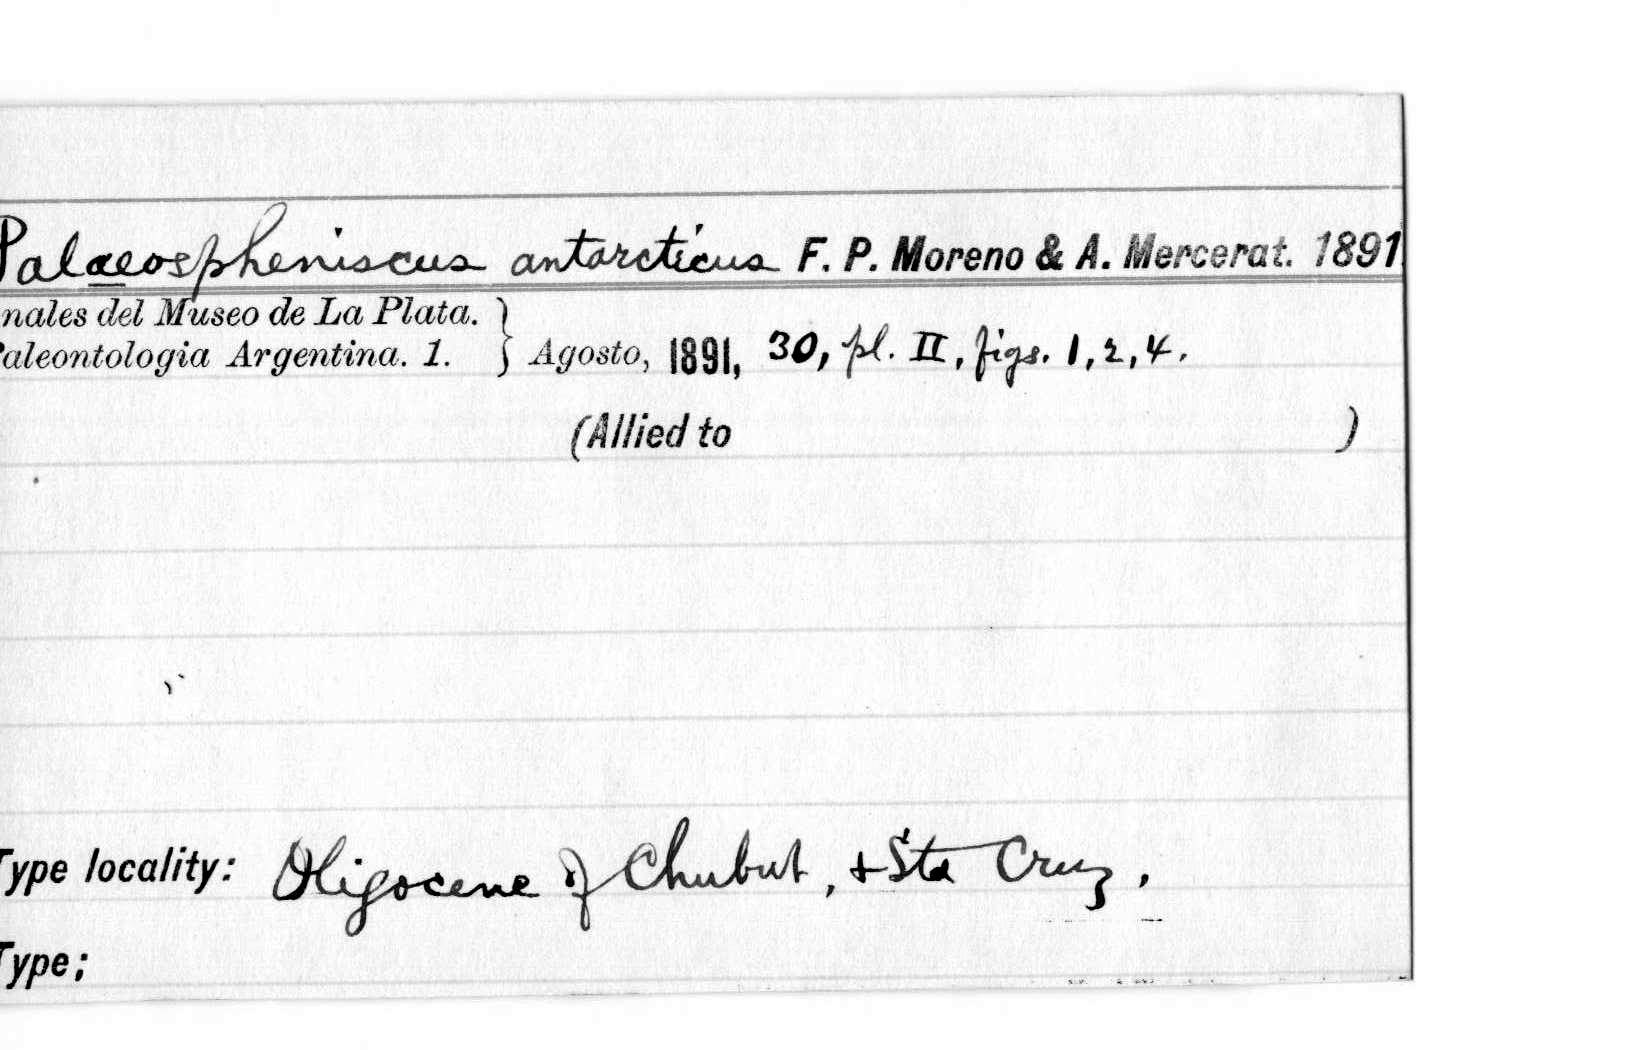 Palaeospheniscus antarcticus F. P. Moreno & A. Mercerat. 1891.
nales del Museo de La Plata.
Paleontologia Argentina. 1. } Agosto, 1891, 30, pl. II, figs. 1, 2, 4.
(Allied to )
Type locality: Oligocene of Chubut, + Sta Cruz.
Type;